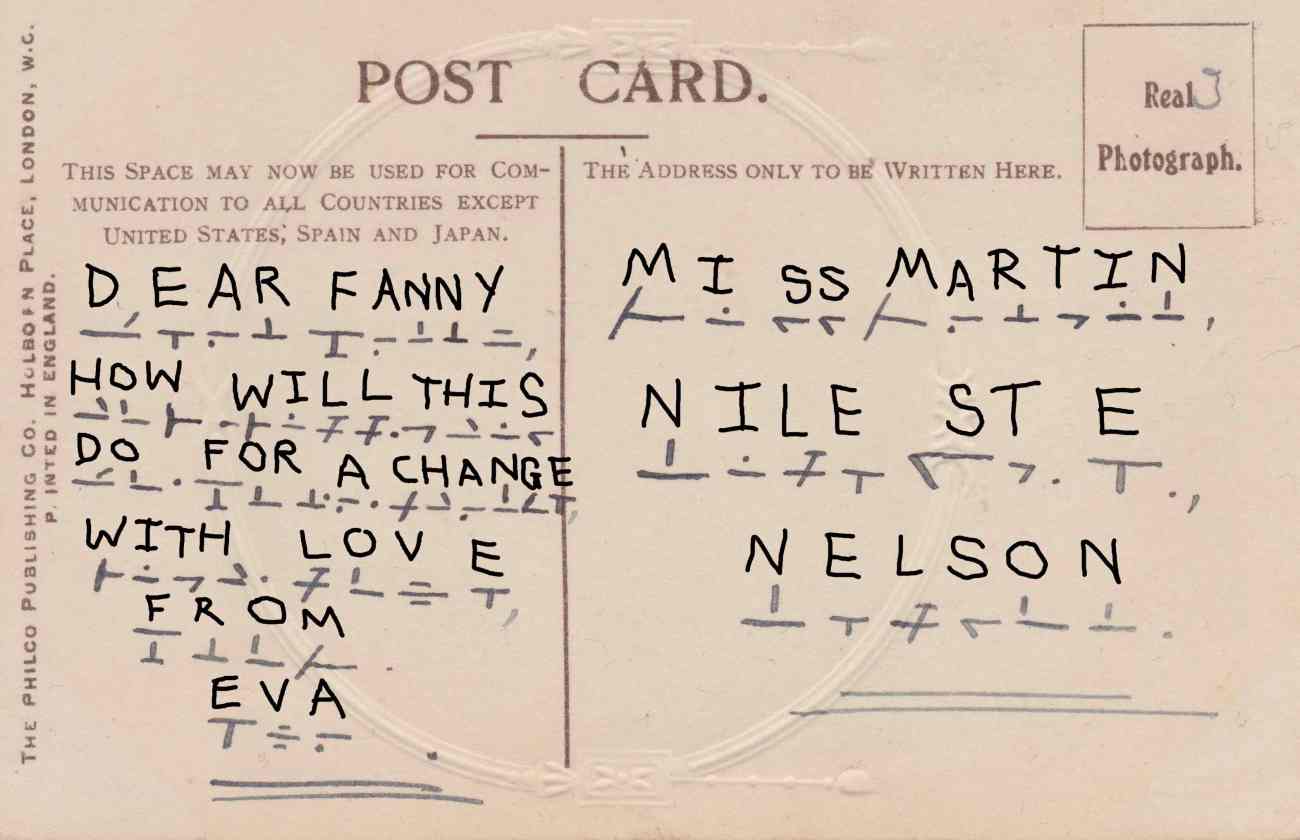 POST CARD.
THIS SPACE MAY NOW BE USED FOR COM-
MUNICATION TO ALL COUNTRIES EXCEPT
UNITED STATES, SPAIN AND JAPAN.
DEAR FANNY
HOW WILL THIS
DO FOR A CHANGE
WITH LOVE
FROM
EVA
THE ADDRESS ONLY TO BE WRITTEN HERE.
Real
Photograph.
MISS MARTIN
NILE ST E
NELSON
THE PHILCO PUBLISHING CO. HOLBORN PLACE, LONDON, W.C.
P. INTED IN ENGLAND.